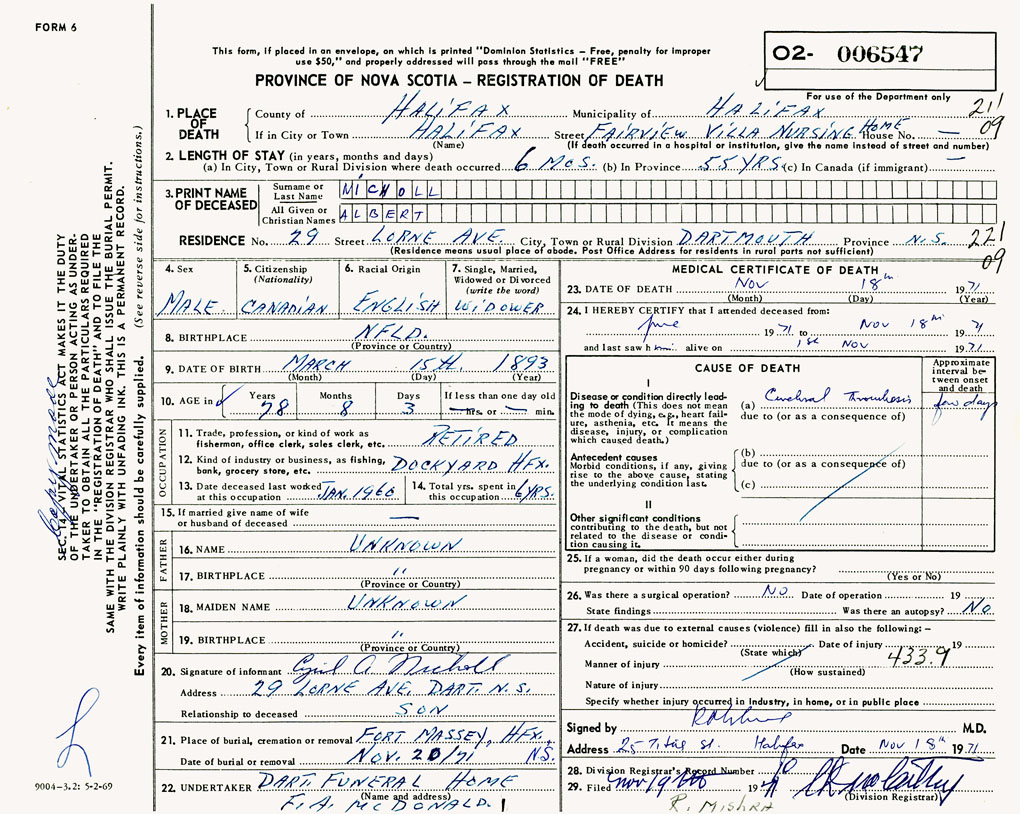 FORM 6
This form, if placed in an envelope, on which is printed "Dominion Statistics – Free, penalty for improper
use $50," and properly addressed will pass through the mail "FREE"
PROVINCE OF NOVA SCOTIA – REGISTRATION OF DEATH
02- 006547
For use of the Department only
1. PLACE OF DEATH
County of HALIFAX Municipality of HALIFAX 211
If in City or Town HALIFAX Street FAIRVIEW VILLA NURSING HOME House No. — 09
(Name) (If death occurred in a hospital or institution, give the name instead of street and number)
2. LENGTH OF STAY (in years, months and days)
(a) In City, Town or Rural Division where death occurred 6 MOS. (b) In Province 55 YRS. (c) In Canada (if immigrant) —
3. PRINT NAME OF DECEASED
Surname or Last Name NICHOLL
All Given or Christian Names ALBERT
RESIDENCE No. 29 Street LORNE AVE. City, Town or Rural Division DARTMOUTH Province N.S. 221
(Residence means usual place of abode. Post Office Address for residents in rural parts not sufficient) 09
4. Sex MALE
5. Citizenship (Nationality) CANADIAN
6. Racial Origin ENGLISH
7. Single, Married, Widowed or Divorced (write the word) WIDOWER
8. BIRTHPLACE NFLD.
(Province or Country)
9. DATE OF BIRTH MARCH 15th. 1893
(Month) (Day) (Year)
10. AGE in Years 78 Months 8 Days 3 If less than one day old — hrs. or — min.
OCCUPATION
11. Trade, profession, or kind of work as fisherman, office clerk, sales clerk, etc. RETIRED
12. Kind of industry or business, as fishing, bank, grocery store, etc. DOCKYARD HFX.
13. Date deceased last worked at this occupation JAN. 1966
14. Total yrs. spent in this occupation 6 YRS.
15. If married give name of wife or husband of deceased —
FATHER
16. NAME UNKNOWN
17. BIRTHPLACE "
(Province or Country)
MOTHER
18. MAIDEN NAME UNKNOWN
19. BIRTHPLACE "
(Province or Country)
20. Signature of informant Cyril A. Nicholl
Address 29 LORNE AVE. DART. N.S.
Relationship to deceased SON
21. Place of burial, cremation or removal FORT MASSEY, HFX.,
Date of burial or removal NOV. 20/71 N.S.
22. UNDERTAKER DART. FUNERAL HOME
(Name and address)
F. A. MCDONALD.
MEDICAL CERTIFICATE OF DEATH
23. DATE OF DEATH NOV 18th 1971
(Month) (Day) (Year)
24. I HEREBY CERTIFY that I attended deceased from:
June 1971 to NOV 18th 71
and last saw him alive on 1st NOV 1971
CAUSE OF DEATH
Approximate interval between onset and death
I
Disease or condition directly leading to death (This does not mean the mode of dying, e.g., heart failure, asthenia, etc. It means the disease, injury, or complication which caused death.)
(a) Cerebral Thrombosis few days
due to (or as a consequence of)
Antecedent causes
Morbid conditions, if any, giving rise to the above cause, stating the underlying condition last.
(b)
due to (or as a consequence of)
(c)
II
Other significant conditions contributing to the death, but not related to the disease or condition causing it.
25. If a woman, did the death occur either during pregnancy or within 90 days following pregnancy?
(Yes or No)
26. Was there a surgical operation? NO Date of operation 19
State findings Was there an autopsy? No
27. If death was due to external causes (violence) fill in also the following: –
Accident, suicide or homicide? Date of injury 19
(State which) 433.9
Manner of injury
(How sustained)
Nature of injury
Specify whether injury occurred in industry, in home, or in public place
Signed by M.D.
Address 25 Titus St. Halifax Date NOV 18th 1971
28. Division Registrar's Record Number
29. Filed Nov 19th 1971
(Division Registrar)
R. MISHRA
SEC. 14, VITAL STATISTICS ACT MAKES IT THE DUTY
OF THE UNDERTAKER OR PERSON ACTING AS UNDER-
TAKER TO OBTAIN ALL THE PARTICULARS REQUIRED
IN THE "REGISTRATION OF DEATH" AND TO FILE THE
SAME WITH THE DIVISION REGISTRAR WHO SHALL ISSUE THE BURIAL PERMIT.
WRITE PLAINLY WITH UNFADING INK. THIS IS A PERMANENT RECORD.
Every item of information should be carefully supplied. (See reverse side for instructions.)
Copy made
9004–3.2: 5-2-69